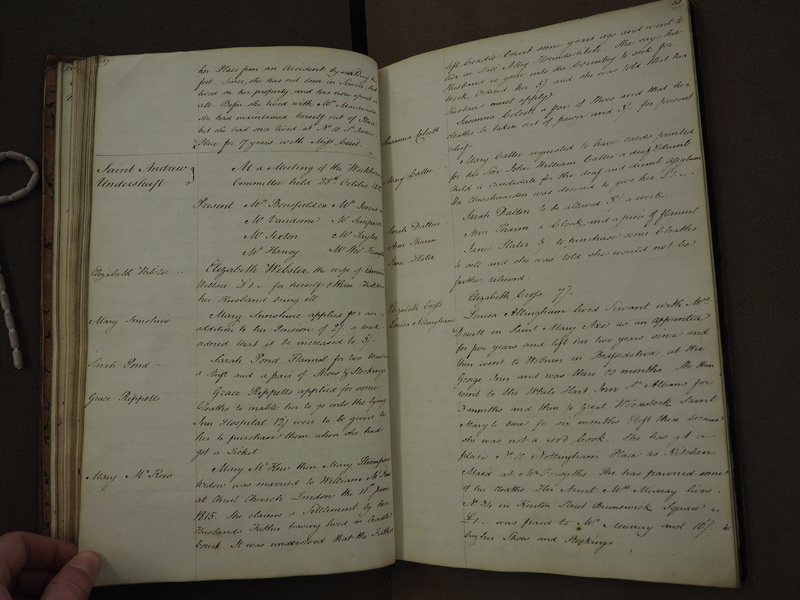 her Place from an Accident by
fort. Since, she has not been in Service, but
lived on her property, and has now spent it
all. Before she lived with Mrs
she had maintained herself out of Place
but she had once lived at No 11 St
Place for 7 years with Miss Cecil.
Saint Andrew
Undershaft
At a Meeting of the Workhouse
Committee held 28th October
Present Mr Mr Jones
Mr Vandome Mr Simpson
Mr Sexton Mr Taylor
Mr Harvey Mr
Elizabeth Webster
Elizabeth Webster the wife of
£1.. for herself & three Children
her Husband being ill
Mary Sunshine
Mary Sunshine applied for an
addition to her Pension of 2/ a week
ordered that it be increased to 3/.
Sarah Pond
Sarah Pond Flannel for two
a Shift and a pair of Shoes & Stockings
Grace Rippolls
Grace Rippolls applied for some
Cloaths to enable her to go into the lying
Inn Hospital 12/ were to be given to
her to purchase them, when she had
got a Ticket
Mary McKew
Mary McKew then Mary Thompson
Widow was married to William McKew
at Christ Church London the 11th June
1815. She claims a Settlement by her
Husbands Father having lived in Cradle
Court. It was understood that the Father
left Cradle Court some years ago and went to
live in Still Alley Houndsditch. She says her
Husband is gone into the Country to seek for
Work. Ordered her 5/. and she was told that her
Husband must apply.
Susanna Colcott
Susanna Colcott a pair of Shoes and that her
cloaths be taken out of pawn and 3/. for present
relief.
Mary Caller
Mary Caller requested to have cards printed
for her Son John William Caller a deaf & dumb
Child a candidate for the deaf and dumb Assylum
the Churchwarden was desired to give her £1..
Sarah Dalton
Sarah Dalton to be allowed 3/. a week.
Ann Thorn
Ann Thorn a Cloak and a piece of flannel
Jane Slater
Jane Slater 5/. to purchase some Cloaths
to sell and she was told she would not be
further relieved.
Elizabeth Cross
Elizabeth Cross 7/.
Louisa Allingham
Louisa Allingham lived Servant with Mrs
Dewell in Saint Mary Axe as an apprentice
for five years and left her two years since and
then went to Woburn in Bedfordshire at the
George Inn and was there 10 months. She then
went to the White Hart Inn St Albans for
3 months and then to Great Woodstock Saint
Mary's for six months & left there because
she was not a good Cook. She has got a
place No 11 Nottingham Place as Kitchen
Maid at Mr Forsyths. She has pawned some
of her cloaths. Her Aunt Mrs Murray lives
No 34 in Kenton Street Brunswick Square
£1.. was paid to Mrs Murray and 10/. to
buy her Shoes and Stockings.